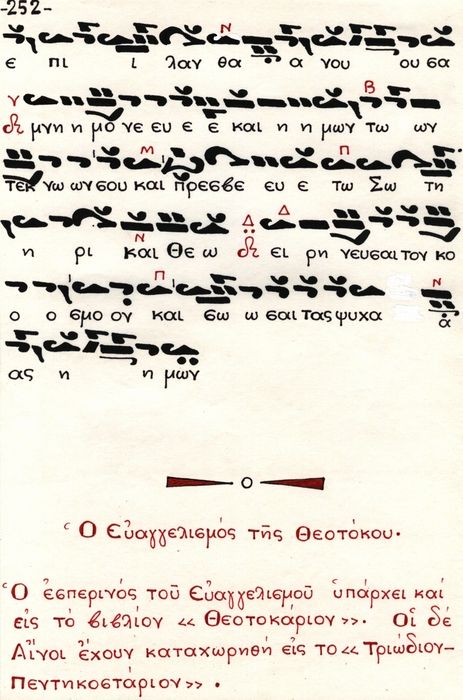 -252-
Ν
ε πι ι λαν θα α νου ου σα
γ Β
μνη η μο νε ευ ε ε και η η μων τω ων
Μ Π
τεκ νω ων σου και πρεσβε ευ ε τω Σω τη
Ν Δ Δ
η ρι και Θε ω ει ρη νευσαι τον κο
Π Ν
ο ο σμο ον και σω ω σαι τας ψυχα α
ας η η μων
Ὁ Εὐαγγελισμός τῆς Θεοτόκου.
Ὁ ἑσπερινός τοῦ Εὐαγγελισμοῦ ὑπάρχει καί
εἰς τό βιβλίον «Θεοτοκάριον». Οἱ δέ
Αἶνοι ἔχουν καταχωρηθῆ εἰς το «Τριώδιον-
Πεντηκοστάριον».